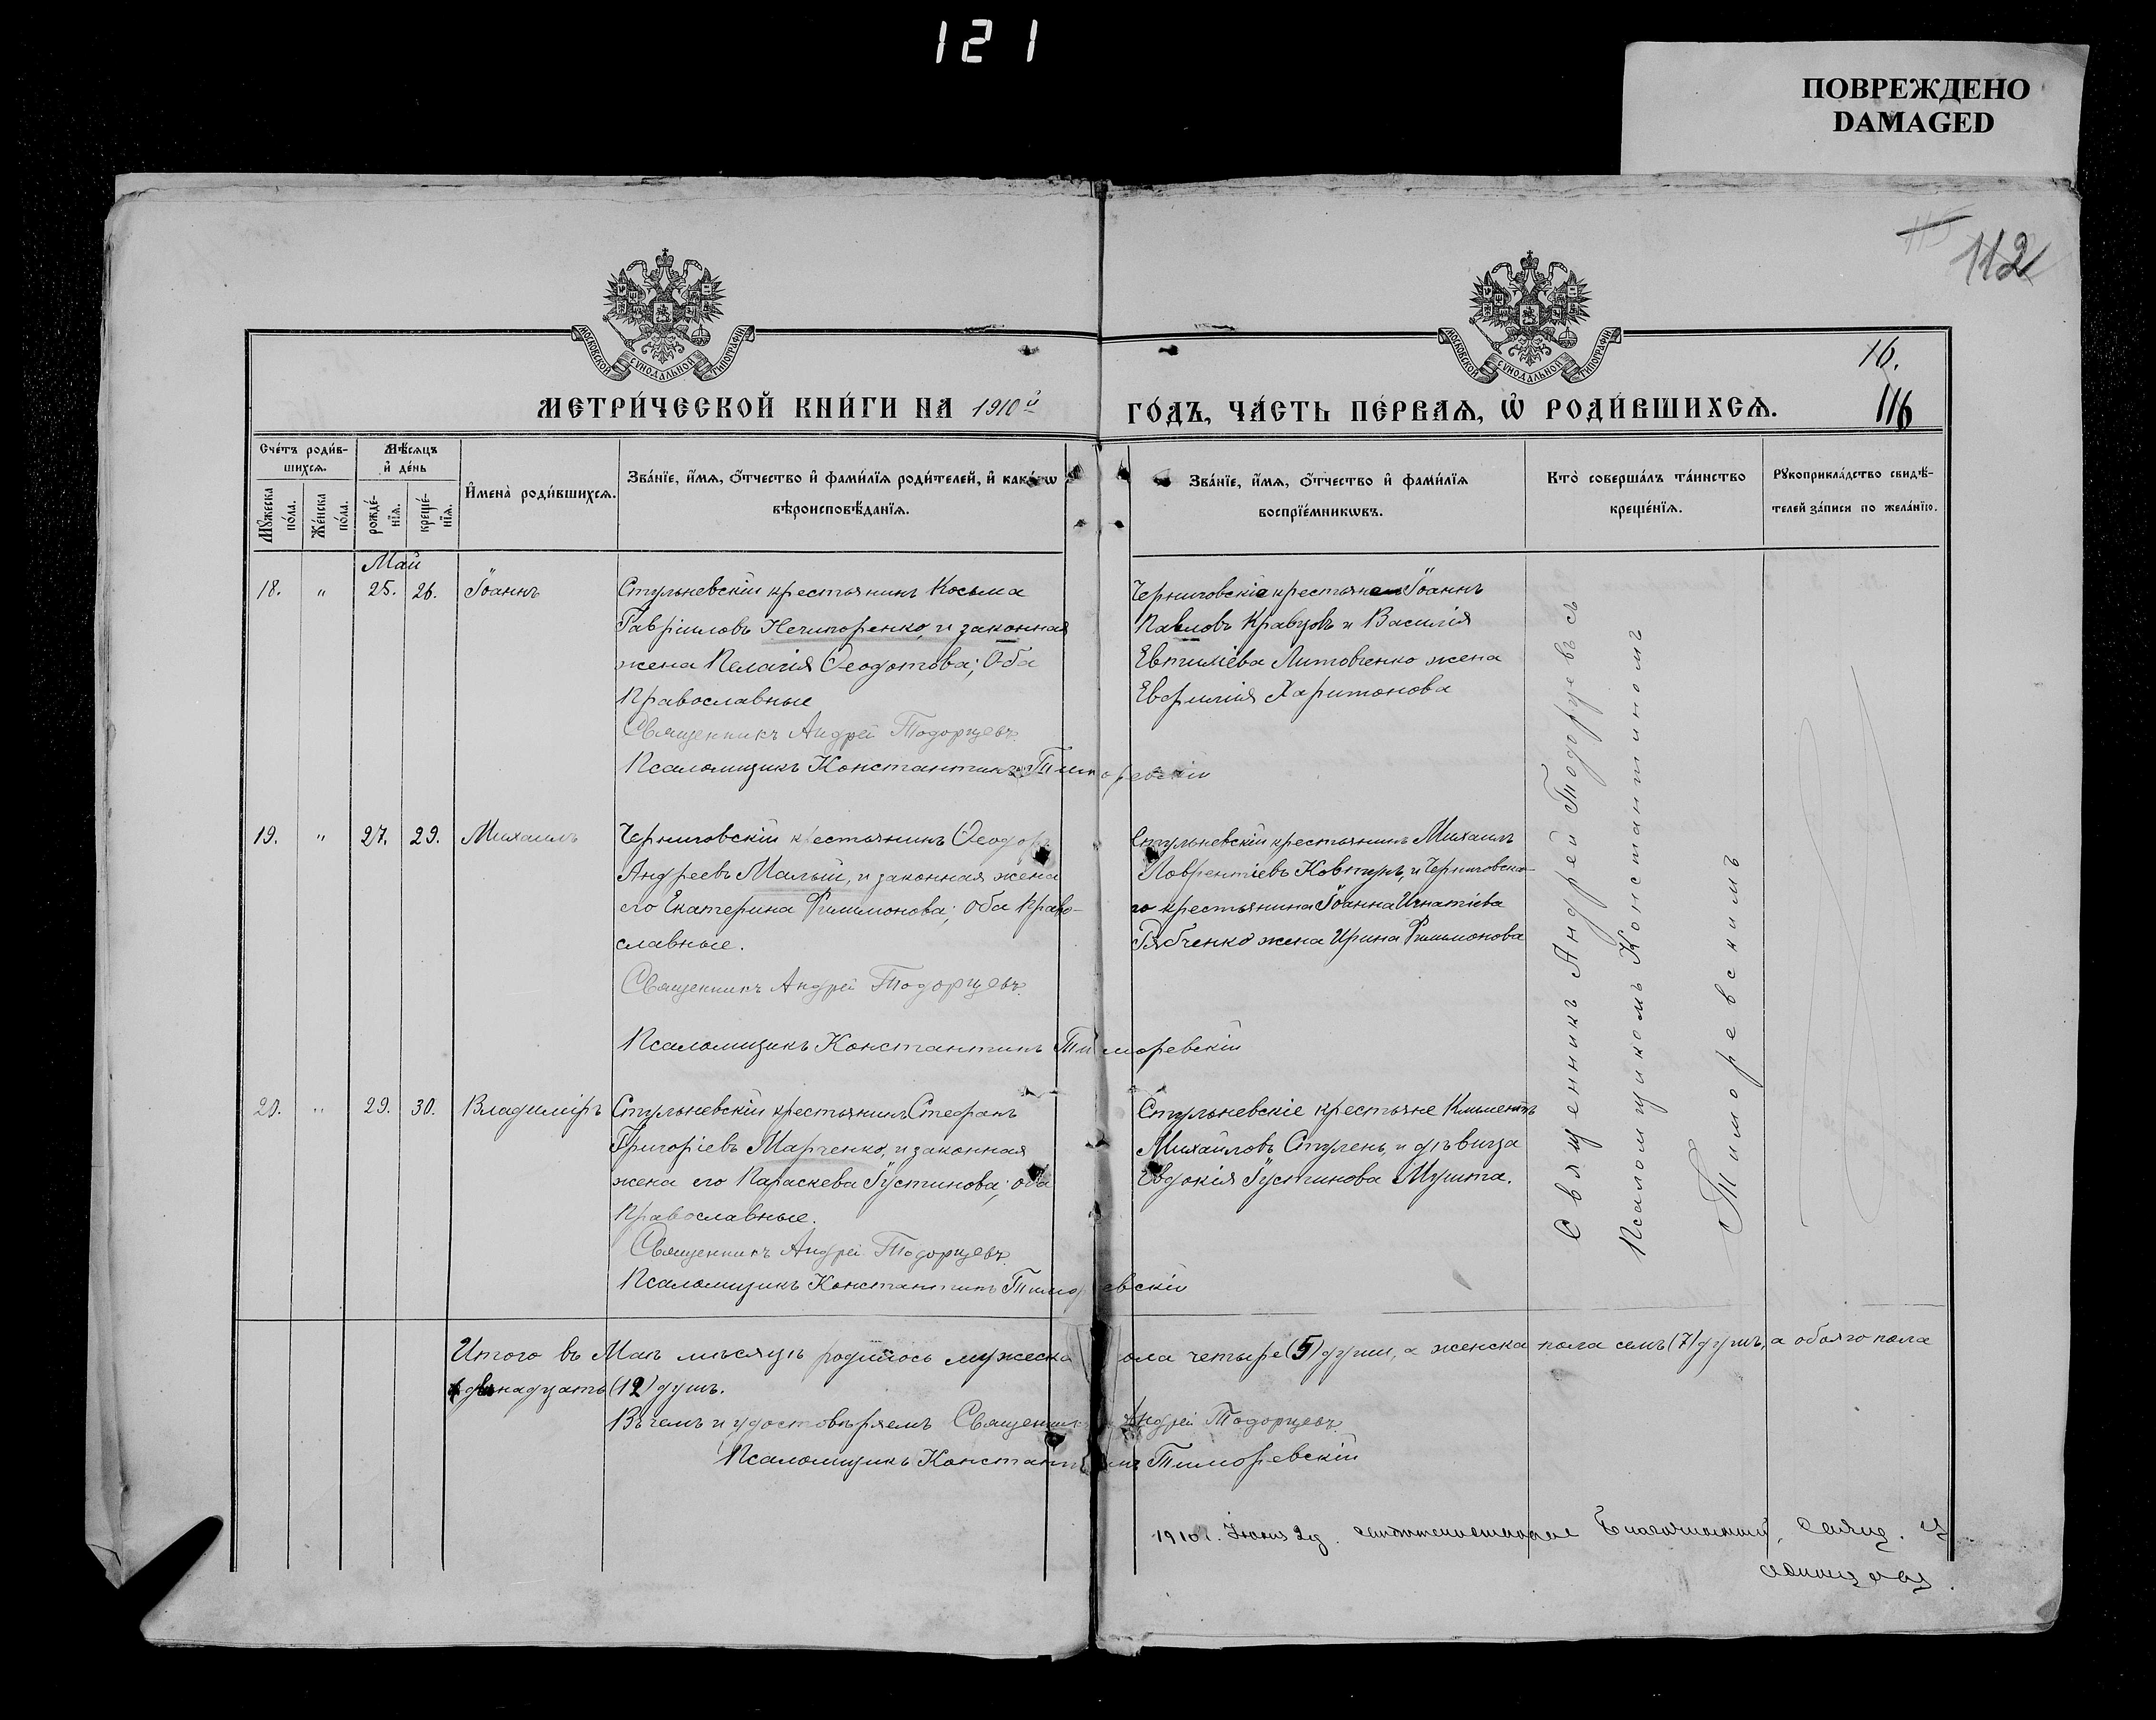 121
ПОВРЕЖДЕНО
DAMAGED
115
112
МОСКОВСКОЙ СѴНОДАЛЬНОЙ ТИПОГРАФІИ
МОСКОВСКОЙ СѴНОДАЛЬНОЙ ТИПОГРАФІИ
16.
МЕТРИ́ЧЕСКОЙ КНИ́ГИ НА 1910й
ГО́ДЪ, ЧА́СТЬ ПЕ́РВАѦ, Ѡ РОДИ́ВШИХСѦ.
116
Сче́тъ роди́в-
шихсѧ.
Мѣ́сѧцъ
и де́нь
Мꙋ́жеска
по́ла.
Же́нска
по́ла.
рожде́-
нїѧ.
креще́-
нїѧ.
И҆мена̀ роди́вшихсѧ.
Зва́нїе, и҆́мѧ, ѻ҆́тчество и҆ фами́лїѧ роди́телей, и҆ како́гѡ
вѣроисповѣ́данїѧ.
Зва́нїе, и҆́мѧ, ѻ҆́тчество и҆ фами́лїѧ
воспрїе́мникѡвъ.
Кто̀ соверша́лъ та́инство
креще́нїѧ.
Рꙋкоприкла́дство свидѣ́-
телей за́писи по жела́нїю.
Май
18. " 25. 26. Іоаннъ
Стульневскій крестьянинъ Косьма
Гавріиловъ Нечипоренко, и законная
жена Пелагія Ѳеодотова; Оба
Православные
Священникъ Андрей Тодорцевъ.
Псаломщикъ Константинъ Тиморевскій
Черниговскіе крестьяне Іоаннъ
Павловъ Кравцовъ и Василія
Евтиміева Литовченко жена
Евфимія Харитонова
19. " 27. 29. Михаилъ
Черниговскій крестьянинъ Ѳеодоръ
Андреевъ Малый, и законная жена
его Екатерина Филимонова; Оба Право-
славные.
Священникъ Андрей Тодорцевъ.
Псаломщикъ Константинъ Тиморевскій
Стульневскій крестьянинъ Михаилъ
Лаврентіевъ Ковтунъ, и Черниговска-
го крестьянина Іоанна Игнатіева
Рябченко жена Ирина Филимонова
20. " 29. 30. Владиміръ
Стульневскій крестьянинъ Стефанъ
Григоріевъ Марченко, и законная
жена его Параскева Іустинова; оба
Православные.
Священникъ Андрей Тодорцевъ.
Псаломщикъ Константинъ Тиморевскій
Стульневскіе крестьяне Климентъ
Михайловъ Ступень, и дѣвица
Евдокія Іустинова Мушта.
Священникъ Андрей Тодорцевъ съ
Псаломщикомъ Константиномъ
Тиморевскимъ
Итого въ Маѣ мѣсяцѣ родилось мужеска пола четыре (5) души, а женска пола семь (7) душъ, а обоего пола
двѣнадцать (12) душъ.
Въ чемъ и удостовѣряемъ Священникъ Андрей Тодорцевъ.
Псаломщикъ Константинъ Тиморевскій
1910 г. Іюня Благочинный, Свящ.